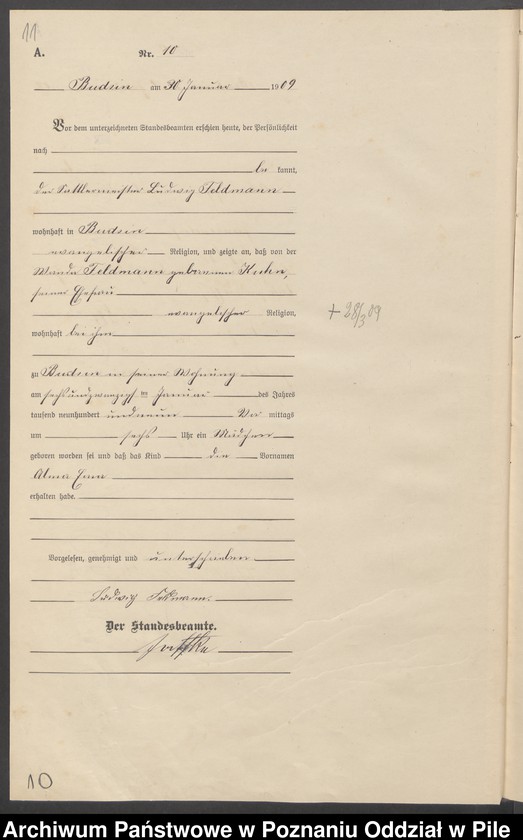 11
A.
Nr. 10
Budsin am 30 Januar 1909
Vor dem unterzeichneten Standesbeamten erschien heute, der Persönlichkeit
nach
be kannt,
der Sattlermeister Ludwig Feldmann
wohnhaft in Budsin
evangelischer Religion, und zeigte an, daß von der
Wanda Feldmann geborenen Kuhn,
seiner Ehefrau
evangelischer Religion,
+ 28/3 09
wohnhaft bei ihm
zu Budsin in seiner Wohnung
am sechsundzwanzigsten Januar des Jahres
tausend neunhundert und neun Vor mittags
um sechs Uhr ein Mädchen
geboren worden sei und daß das Kind den Vornamen
Alma
erhalten habe.
Vorgelesen, genehmigt und unterschrieben
Ludwig Feldmann.
Der Standesbeamte.
10
Archiwum Państwowe w Poznaniu Oddział w Pile